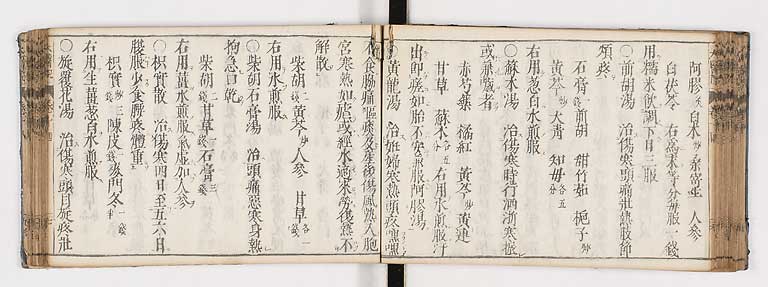 阿膠 白朮 桑寄生 人參
白茯苓 右爲末等分每服一錢
用糯米飲調下日三服
○前胡湯 治傷寒頭痛壯熱肢節
煩疼
石膏 前胡 甜竹茹 梔子炒
黃芩炒 大青 知母各五
右用葱白水煎服
○蘇木湯 治傷寒時行洒淅寒振
或
赤芍藥 橘紅 黃芩炒 黃連
甘草 蘇木各五 右用水煎服汗
出即瘥如胎不安服阿膠湯
○黃龍湯 治妊婦寒熱頭疼嘿嘿
不食脇痛嘔痰及產後傷風熱入胞
宮寒熱如瘧或經水適來勞後熱不
解散
柴胡二錢 黃芩炒 人參 甘草各一錢
右用水煎服
○柴胡石膏湯 治頭痛惡寒身熱
拘急口乾
柴胡二錢 甘草一錢 石膏三錢
右用薑水煎服氣虛加人參
○枳實散 治傷寒四日至五六日
腹脹少食腰疼體重
枳實炒三 陳皮一錢 麥門冬一錢
右用生薑葱白水煎服
○旋覆花湯 治傷寒頭目旋疼壯